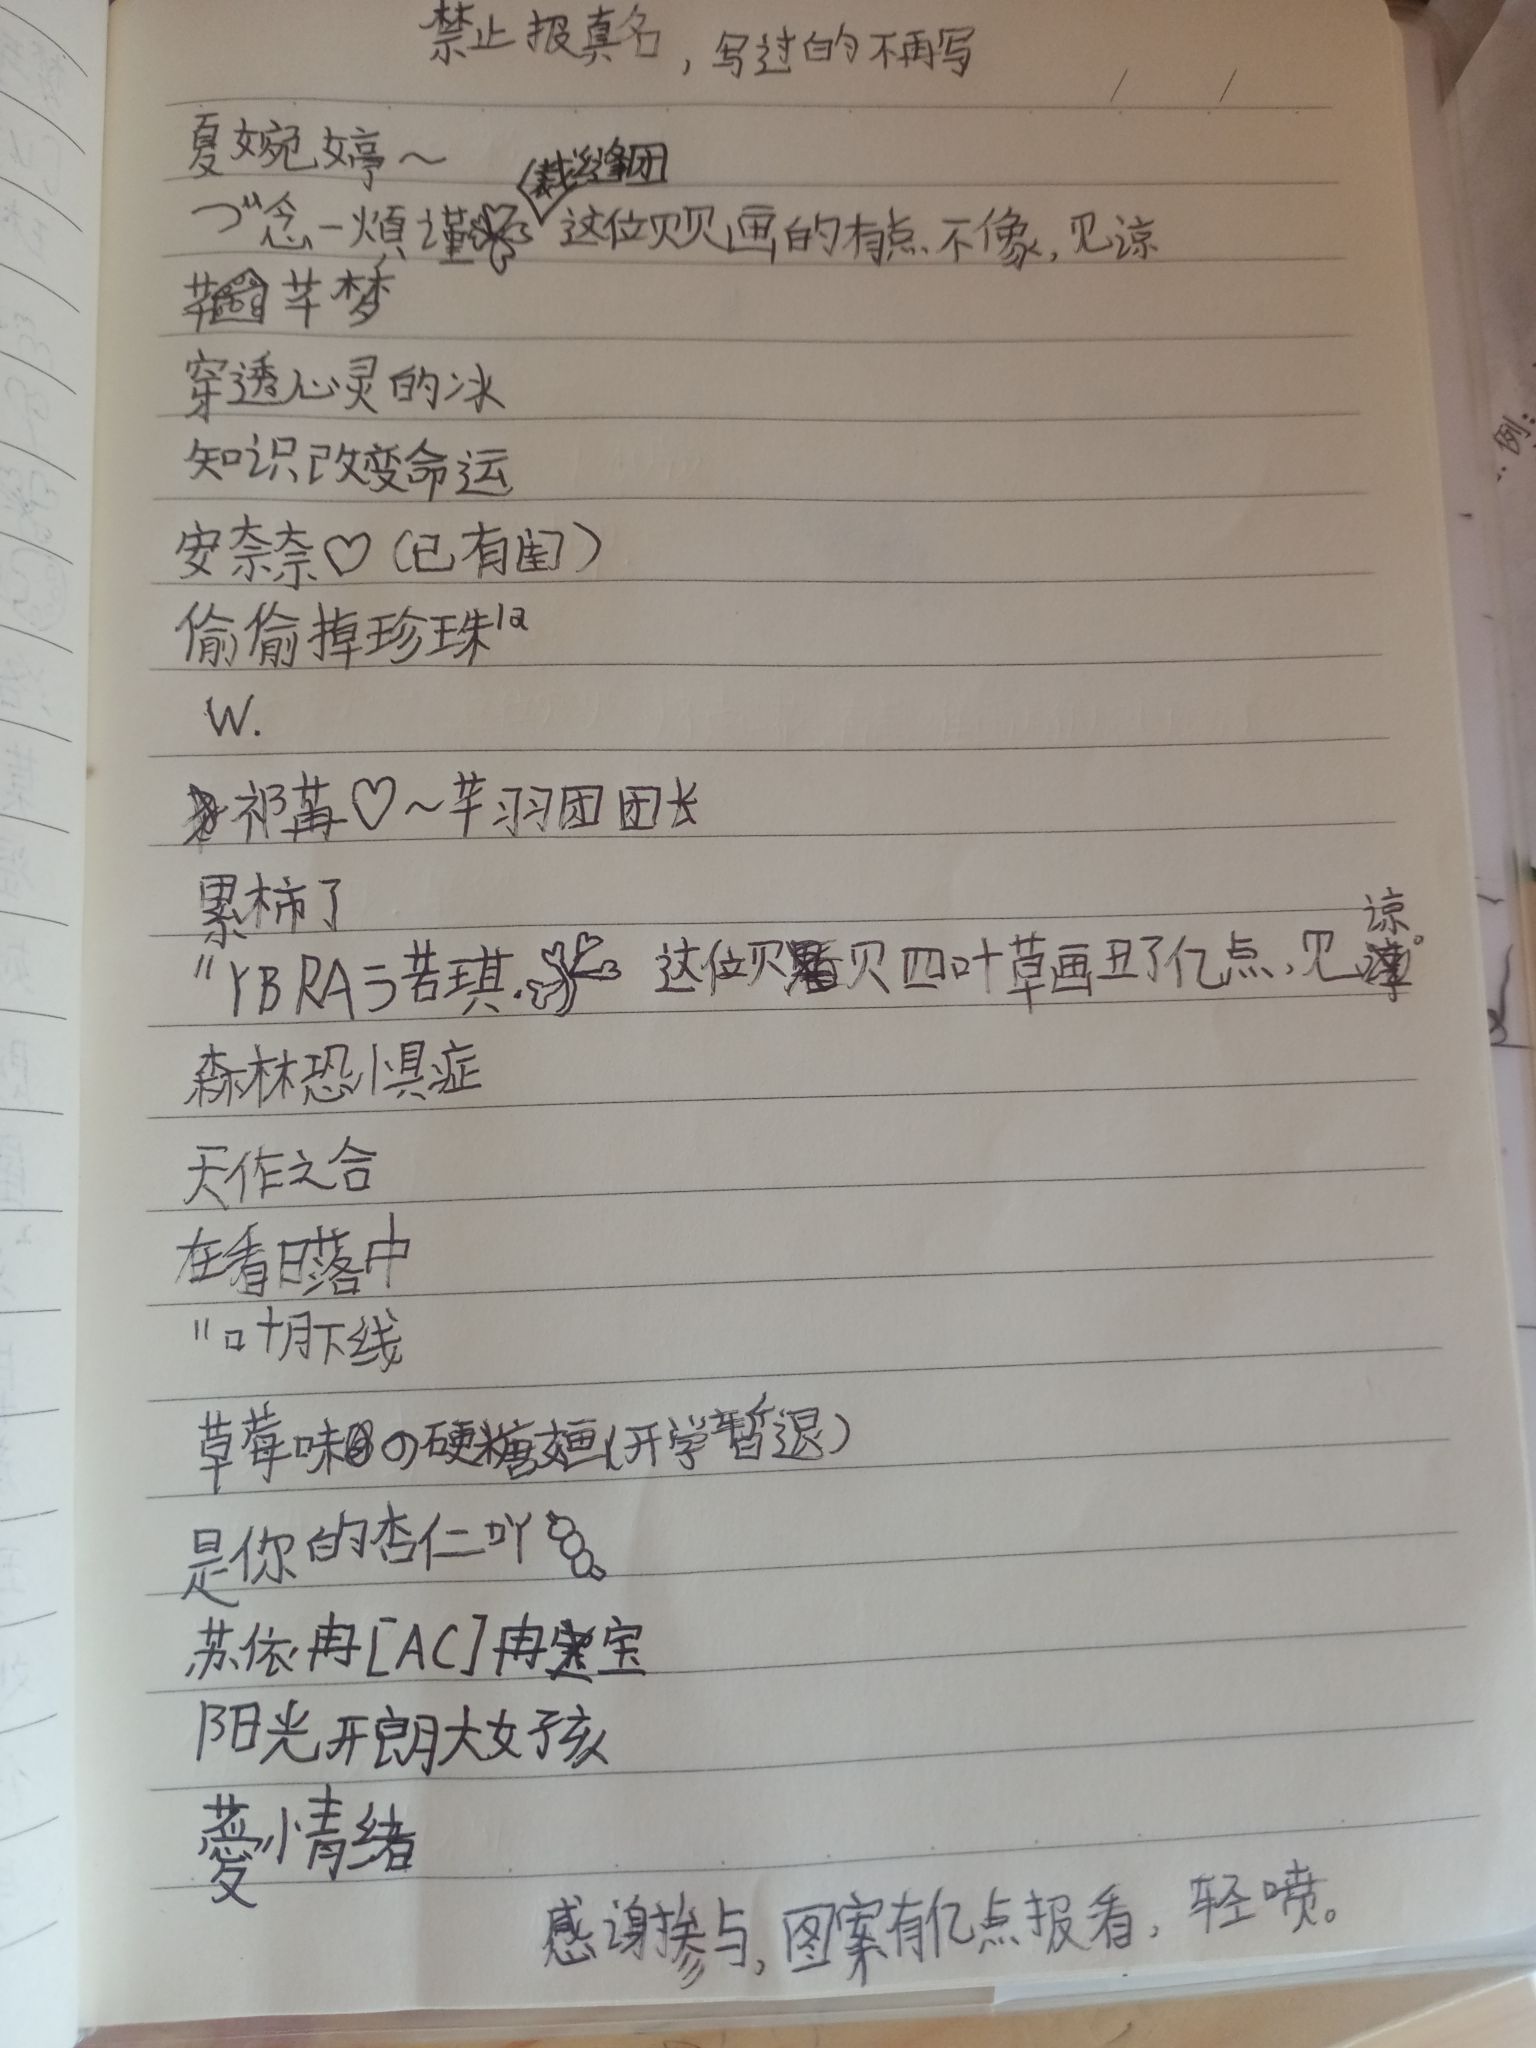 禁止报真名，写过的不再写
夏婉婷～
裁缝团
づ"念一煩谨 这位贝贝画的有点不像，见谅
芊芊梦
穿透心灵的冰
知识改变命运
安奈奈♡（已有闺）
偷偷掉珍珠12
W.
祁苒♡～芊羽团团长
累柿了
"YBRAㄋ若琪. 这位贝贝四叶草画丑了亿点，见谅。
森林恐惧症
天作之合
在看日落中
"叶月下线
草莓味の硬糖（开学暂退）
是你的杏仁吖
苏依冉[AC]冉宝
阳光开朗大女孩
薆情绪
感谢掺与，图案有亿点报看，轻喷。
例：